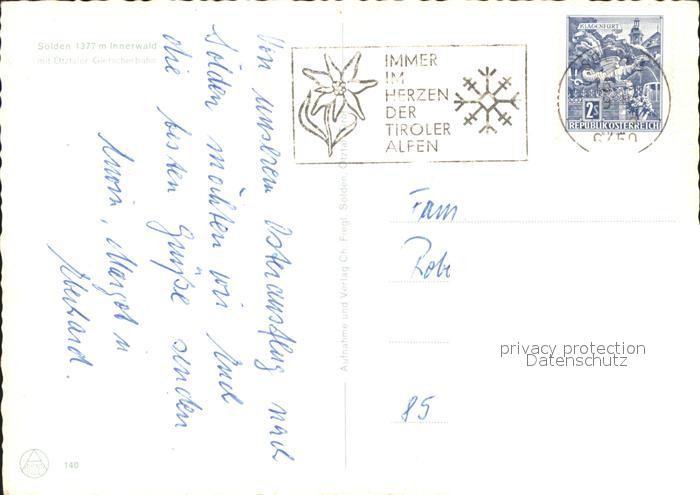 Sölden 1377 m Innerwald
mit Ötztaler Gletscherbahn
Von unserem Osterausflug nach
Sölden möchten wir Euch
die besten Grüße senden
Margot u
Eberhard.
Aufnahme und Verlag Ch. Fiegl, Sölden, Ötztal
140
IMMER
IM
HERZEN
DER
TIROLER
ALPEN
KLAGENFURT
2S
REPUBLIK ÖSTERREICH
6450
Fam
Robe
85
privacy protection
Datenschutz